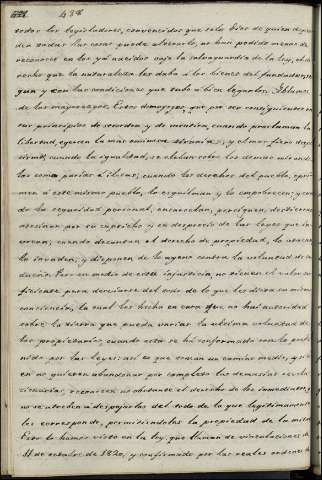 438
todos los legisladores, convencidos que solo Dios de quien depen
den todas las cosas puede alterarlo, no han podido menos de
reconocer en los ya nacidos bajo la salvaguardia de la ley, el de
recho que la naturaleza les daba á los bienes del fundador, se
gun y con las condiciones que tubo á bien legarlos. Hablamos
de los mayorazgos. Estos demagogos, que por ser consiguientes en
sus principios de desorden y de mentira, cuando proclaman la
libertad, ejercen la mas omimosa tiranía, y el mas fiero despo
tismo; cuando la igualdad, se elevan sobre los demas mirando
los como parias é ilotas; cuando los derechos del pueblo, opri
men á este mismo pueblo, lo esquilman y lo empobrecen; cuan
do la seguridad personal, encarcelan, persiguen, destierran,
asesinan por su capricho y en desprecio de las leyes que in
vocan; cuando decantan el derecho de propiedad, la atacan
la invaden, y disponen de lo ageno contra la voluntad de su
dueño. Pero en medio de esta injusticia, no tienen el valor su
ficiente para desviarse del todo de lo que les dicta su misma
conciencia, la cual les hecha en cara que no hai autoridad
sobre la tierra que pueda variar la ultima voluntad de
los propietarios, cuando esta se há conformado con lo preve
nido por las leyes: así es que toman un camino medio, y si
bien no quieren abandonar por completo las demasias revolu
cionarias, reconocen no obstante el derecho de los inmediatos, y
no se atreben á despojarlos del todo de lo que legitimamente
les corresponde, permitiendoles la propiedad de la mitad.
Esto lo hemos visto en la ley, que llaman de vinculaciones de
11 de octubre de 1820, y confirmado por las reales ordenes de